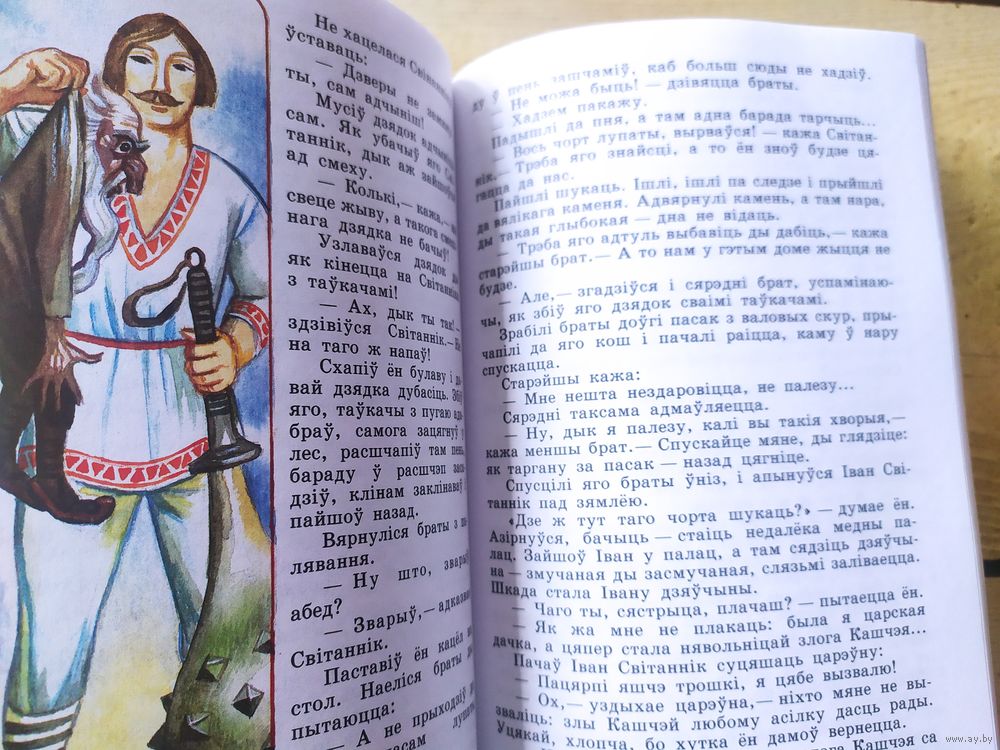 Не хацелася
ўставаць:
— Дзверы не
ты, сам адчыніш!
Мусіў дзядок
сам. Як убачыў яго
таннік, дык аж
ад смеху.
— Колькі,— кажа,—
свеце жыву, а такога
нага дзядка не бачыў!
Узлаваўся дзядок
як кінецца на Світанніка
з таўкачамі!
— Ах, дык ты так! —
здзівіўся Світаннік.—
на таго ж напаў!
Схапіў ён булаву і
вай дзядка дубасіць.
яго, таўкачы з пугаю
браў, самога зацягнуў у
лес, расшчапіў там пень,
бараду ў расшчэп
дзіў, клінам заклінаваў
пайшоў назад.
Вярнуліся браты з
лявання.
— Ну што, зварыў
абед?
— Зварыў,— адказвае
Світаннік.
Паставіў ён кацёл
стол. Наеліся браты
пытаюцца:
— А не прыходзіў
часам
ду ў пень зашчаміў, каб больш сюды не хадзіў.
— Не можа быць! — дзівяцца браты.
— Хадзем пакажу.
Падышлі да пня, а там адна барада тарчыць...
— Вось чорт лупаты, вырваўся! — кажа Світан-
нік.— Трэба яго знайсці, а то ён зноў будзе ця-
гацца да нас.
Пайшлі шукаць. Ішлі, ішлі па следзе і прыйшлі
да вялікага каменя. Адвярнулі камень, а там нара,
ды такая глыбокая — дна не відаць.
— Трэба яго адтуль выбавіць ды дабіць,— кажа
старэйшы брат.— А то нам у гэтым доме жыцця не
будзе.
— Але,— згадзіўся і сярэдні брат, успамінаю-
чы, як збіў яго дзядок сваімі таўкачамі.
Зрабілі браты доўгі пасак з валовых скур, пры-
чапілі да яго кош і пачалі раіцца, каму ў нару
спускацца.
Старэйшы кажа:
— Мне нешта нездаровіцца, не палезу...
Сярэдні таксама адмаўляецца.
— Ну, дык я палезу, калі вы такія хворыя,—
кажа меншы брат.— Спускайце мяне, ды глядзіце:
як таргану за пасак — назад цягніце.
Спусцілі яго браты ўніз, і апынуўся Іван Сві-
таннік пад зямлёю.
«Дзе ж тут таго чорта шукаць?» — думае ён.
Азірнуўся, бачыць — стаіць недалёка медны па-
лац. Зайшоў Іван у палац, а там сядзіць дзяўчы-
на — змучаная ды засмучаная, слязьмі заліваецца.
Шкада стала Івану дзяўчыны.
— Чаго ты, сястрыца, плачаш? — пытаецца ён.
— Як жа мне не плакаць: была я царская
дачка, а цяпер стала нявольніцай злога Кашчэя...
Пачаў Іван Світаннік суцяшаць царэўну:
— Пацярпі яшчэ трошкі, я цябе вызвалю!
— Ох,— уздыхае царэўна,— ніхто мяне не вы-
зваліць: злы Кашчэй любому асілку дасць рады.
Уцякай, хлопча, бо хутка ён дамоў вернецца.
Кашчэя са
www.ay.by